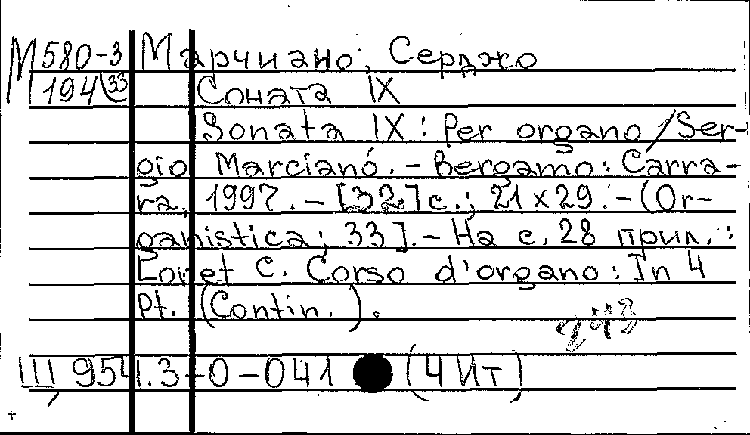 М 580-3 Марчиано, Серджо
194(33 Соната IX
Sonata IX : Per organo / Ser-
gio Marcianó. - Bergamo : Carra-
ra, 1997. - [32] с. ; 21 x 29. - (Or-
ganistica ; 33]. - На с. 28 прил. :
Loret C. Corso d'organo : In 4
Pt. (Contin.).
243
Ш 954.3-0-041 (4 Ит)